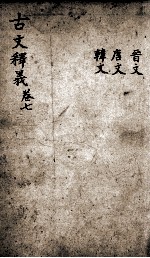 晉文
唐文
韓文
古文釋義卷七